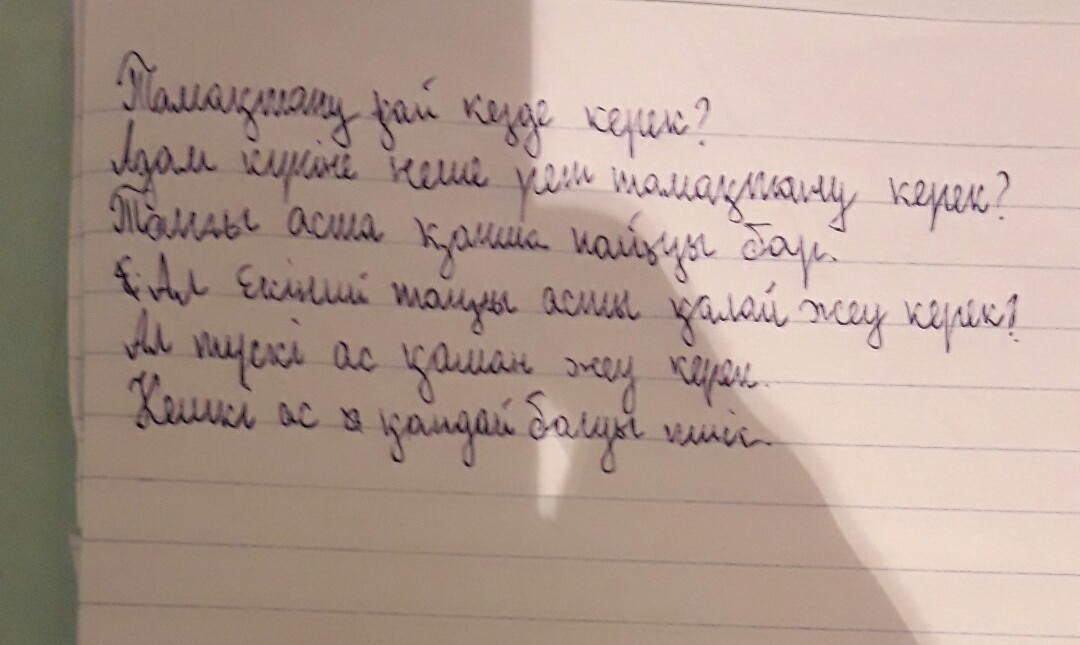 Тамақтану қай кезде керек?
Адам күніне неше рет тамақтану керек?
Таңғы аста қанша пайызы бар.
Ал Екінші таңғы асты қалай жеу керек?
Ал түскі ас қаман жеу керек.
Кешкі ас қандай болуы тиіс.